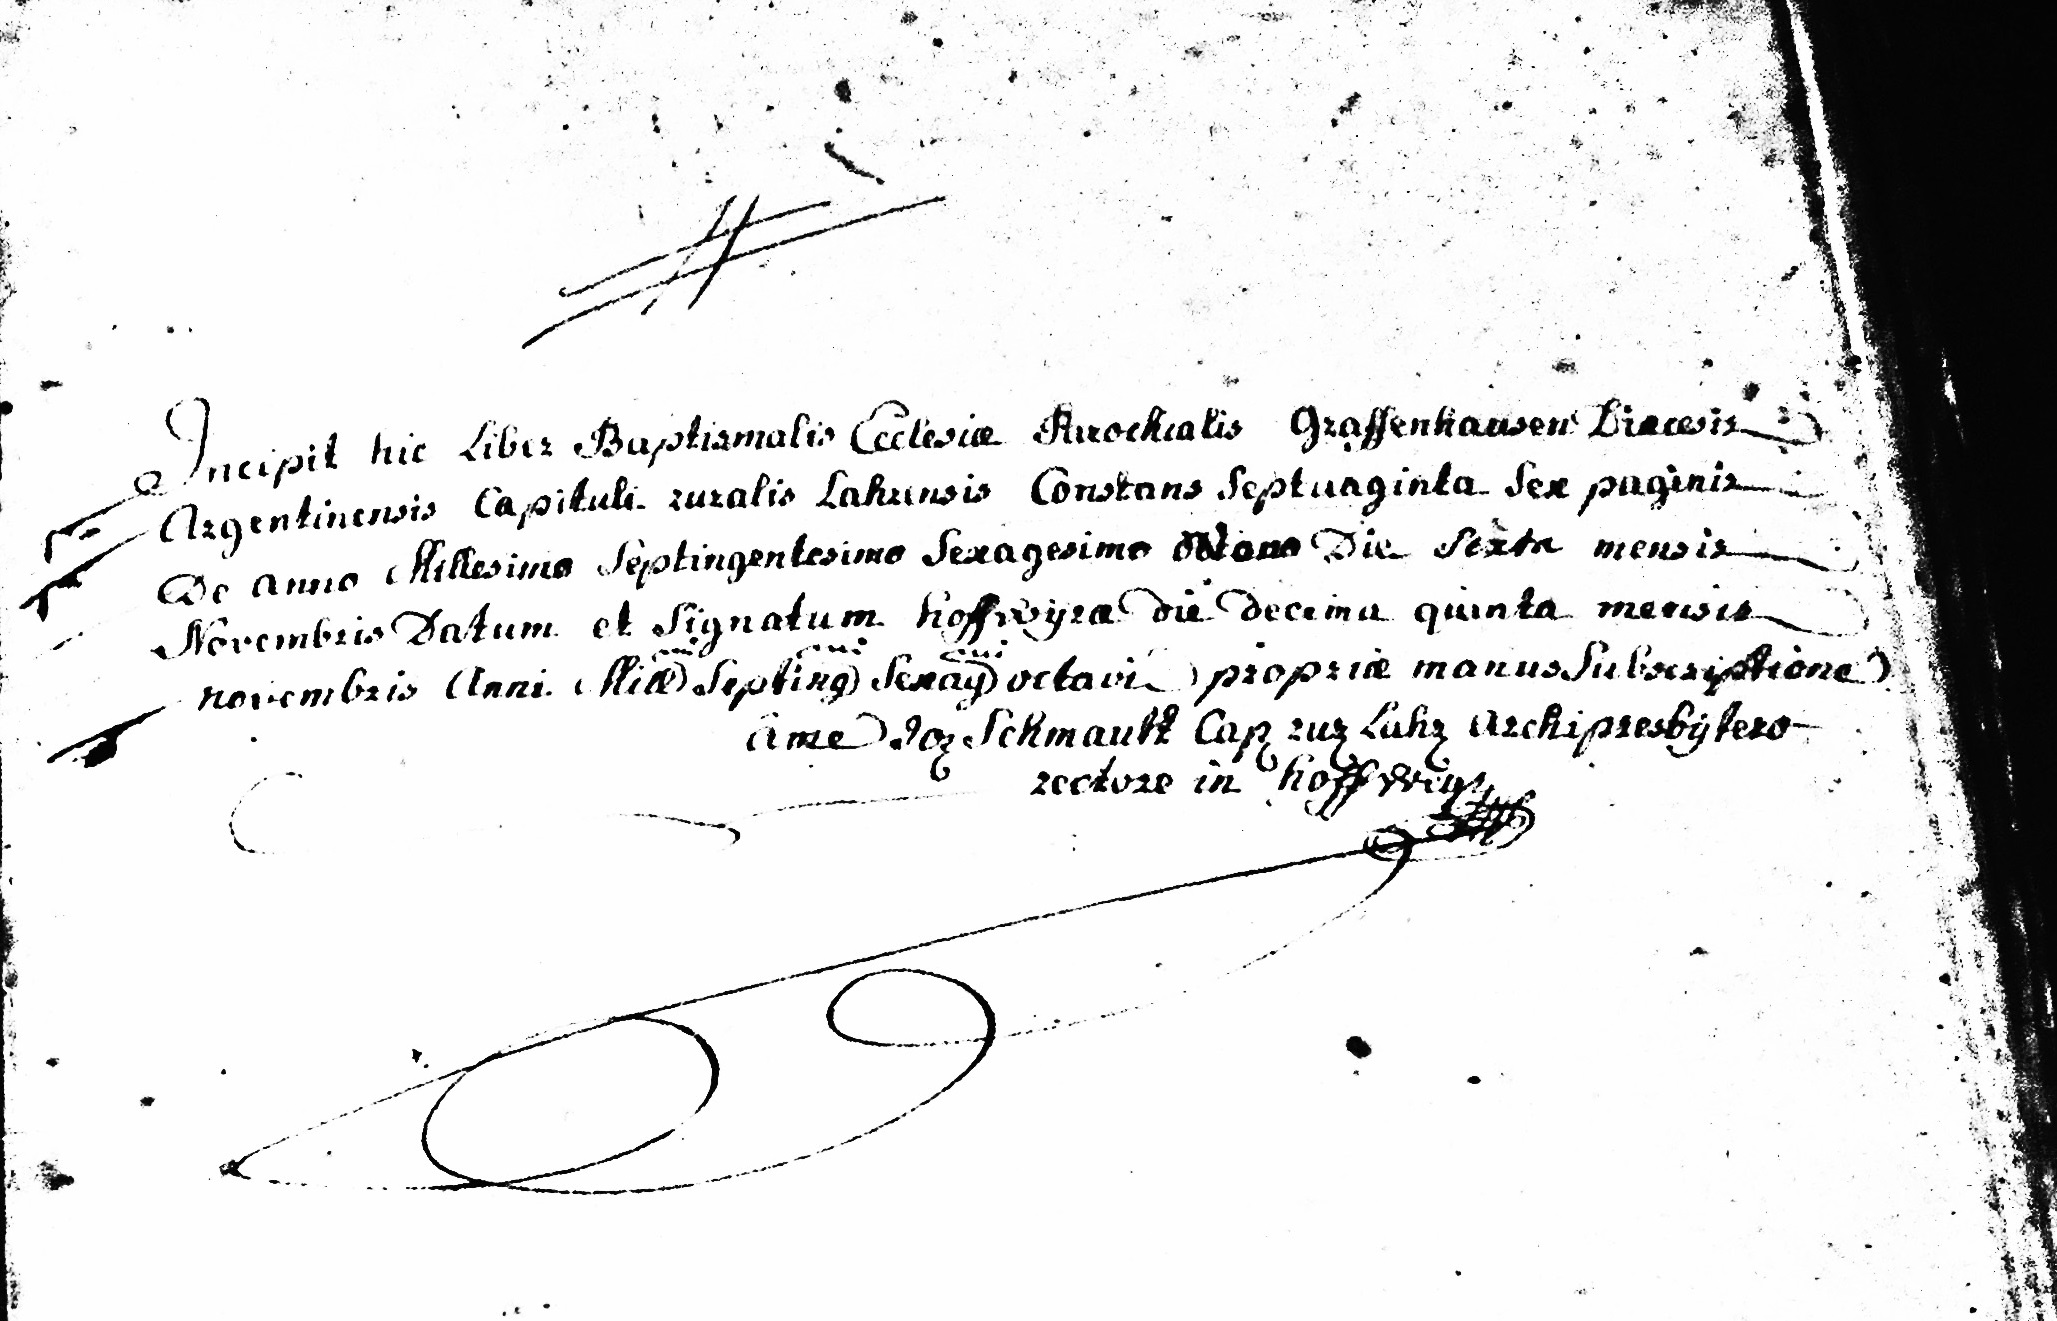 Incipit hic Liber Baptismalis Ecclesiæ Parochialis Graffenhausen Diæcesis
Argentinensis Capituli ruralis Lahrensis Constans Septuaginta Sex paginis
De anno Millesimo Septingentesimo Sexagesimo octavo Die Sexta mensis
Novembris Datum et Signatum hoffwÿræ die decima quinta mensis
novembris Anni Mill) Septing) Sexag) octavi propriæ manus Subscriptione
a me Jos Schmautz Cap rur Lahr archipresbytero
rectore in hoffweyr